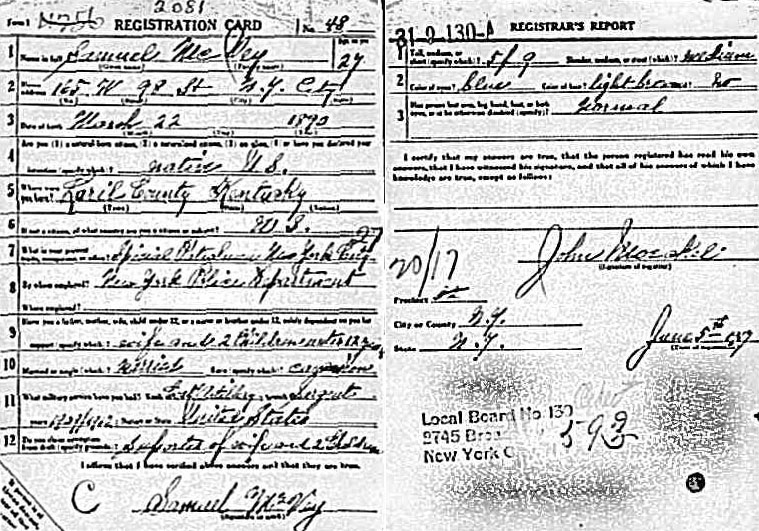 2081
Form 1
REGISTRATION CARD
No. 48
1 Name in full Samuel McVey
Age, in yrs. 27
(Given name) (Family name)
2 Home address 165 W 98 St N.Y. City
(No.) (Street) (City) (State)
3 Date of birth March 22 1890
(Month) (Day) (Year)
Are you (1) a natural-born citizen, (2) a naturalized citizen, (3) an alien, (4) or have you declared your
4 intention (specify which)? native U.S.
5 Where were you born? County Kentucky
(Town) (State) (Nation)
6 If not a citizen, of what country are you a citizen or subject? U.S.
7 What is your present trade, occupation, or office? Special Patrolman New York City
8 By whom employed? New York Police Department
Where employed?
Have you a father, mother, wife, child under 12, or a sister or brother under 12, solely dependent on you for
9 support (specify which)? wife and 2 Children under 12 years
10 Married or single (which)? Married Race (specify which)? Caucasian
11 What military service have you had? Rank Sergeant
years Nation or State United States
12 Do you claim exemption from draft (specify grounds)? Supporter of wife and 2 Children
I affirm that I have verified above answers and that they are true.
C
Samuel McVey
(Signature or mark)
If person is of
31-9-130-A
REGISTRAR'S REPORT
1 Tall, medium, or short (specify which)? 5/9 Slender, medium, or stout (which)? medium
2 Color of eyes? blue Color of hair? light brown Bald? no
3 Has person lost arm, leg, hand, foot, or both eyes, or is he otherwise disabled (specify)? Normal
I certify that my answers are true, that the person registered has read his own
answers, that I have witnessed his signature, and that all of his answers of which I have
knowledge are true, except as follows:
20/17
John
(Signature of registrar)
Precinct
City or County N.Y.
State N.Y.
June 5th 1917
(Date of registration)
Local Board No. 130
2745
New York C
593